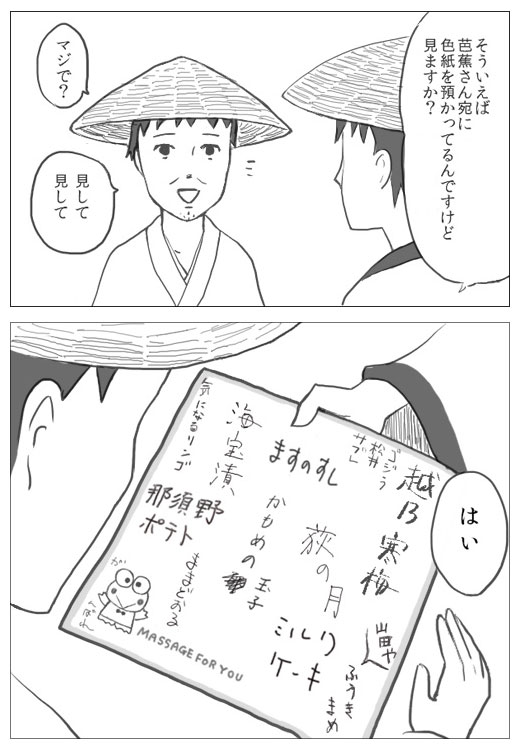 そういえば
芭蕉さん宛に
色紙を預かってるんですけど
見ますか?
マジで?
見して
見して
はい
越乃寒梅
ゴジラ
松井
サブレ
山田や
ふうき
まめ
萩の月
ミルク
ケーキ
ますのすし
かもめの
玉子
海宝漬
気になるリンゴ
那須野
ポテト
ままどおる
がんばれ
MASSAGE FOR YOU